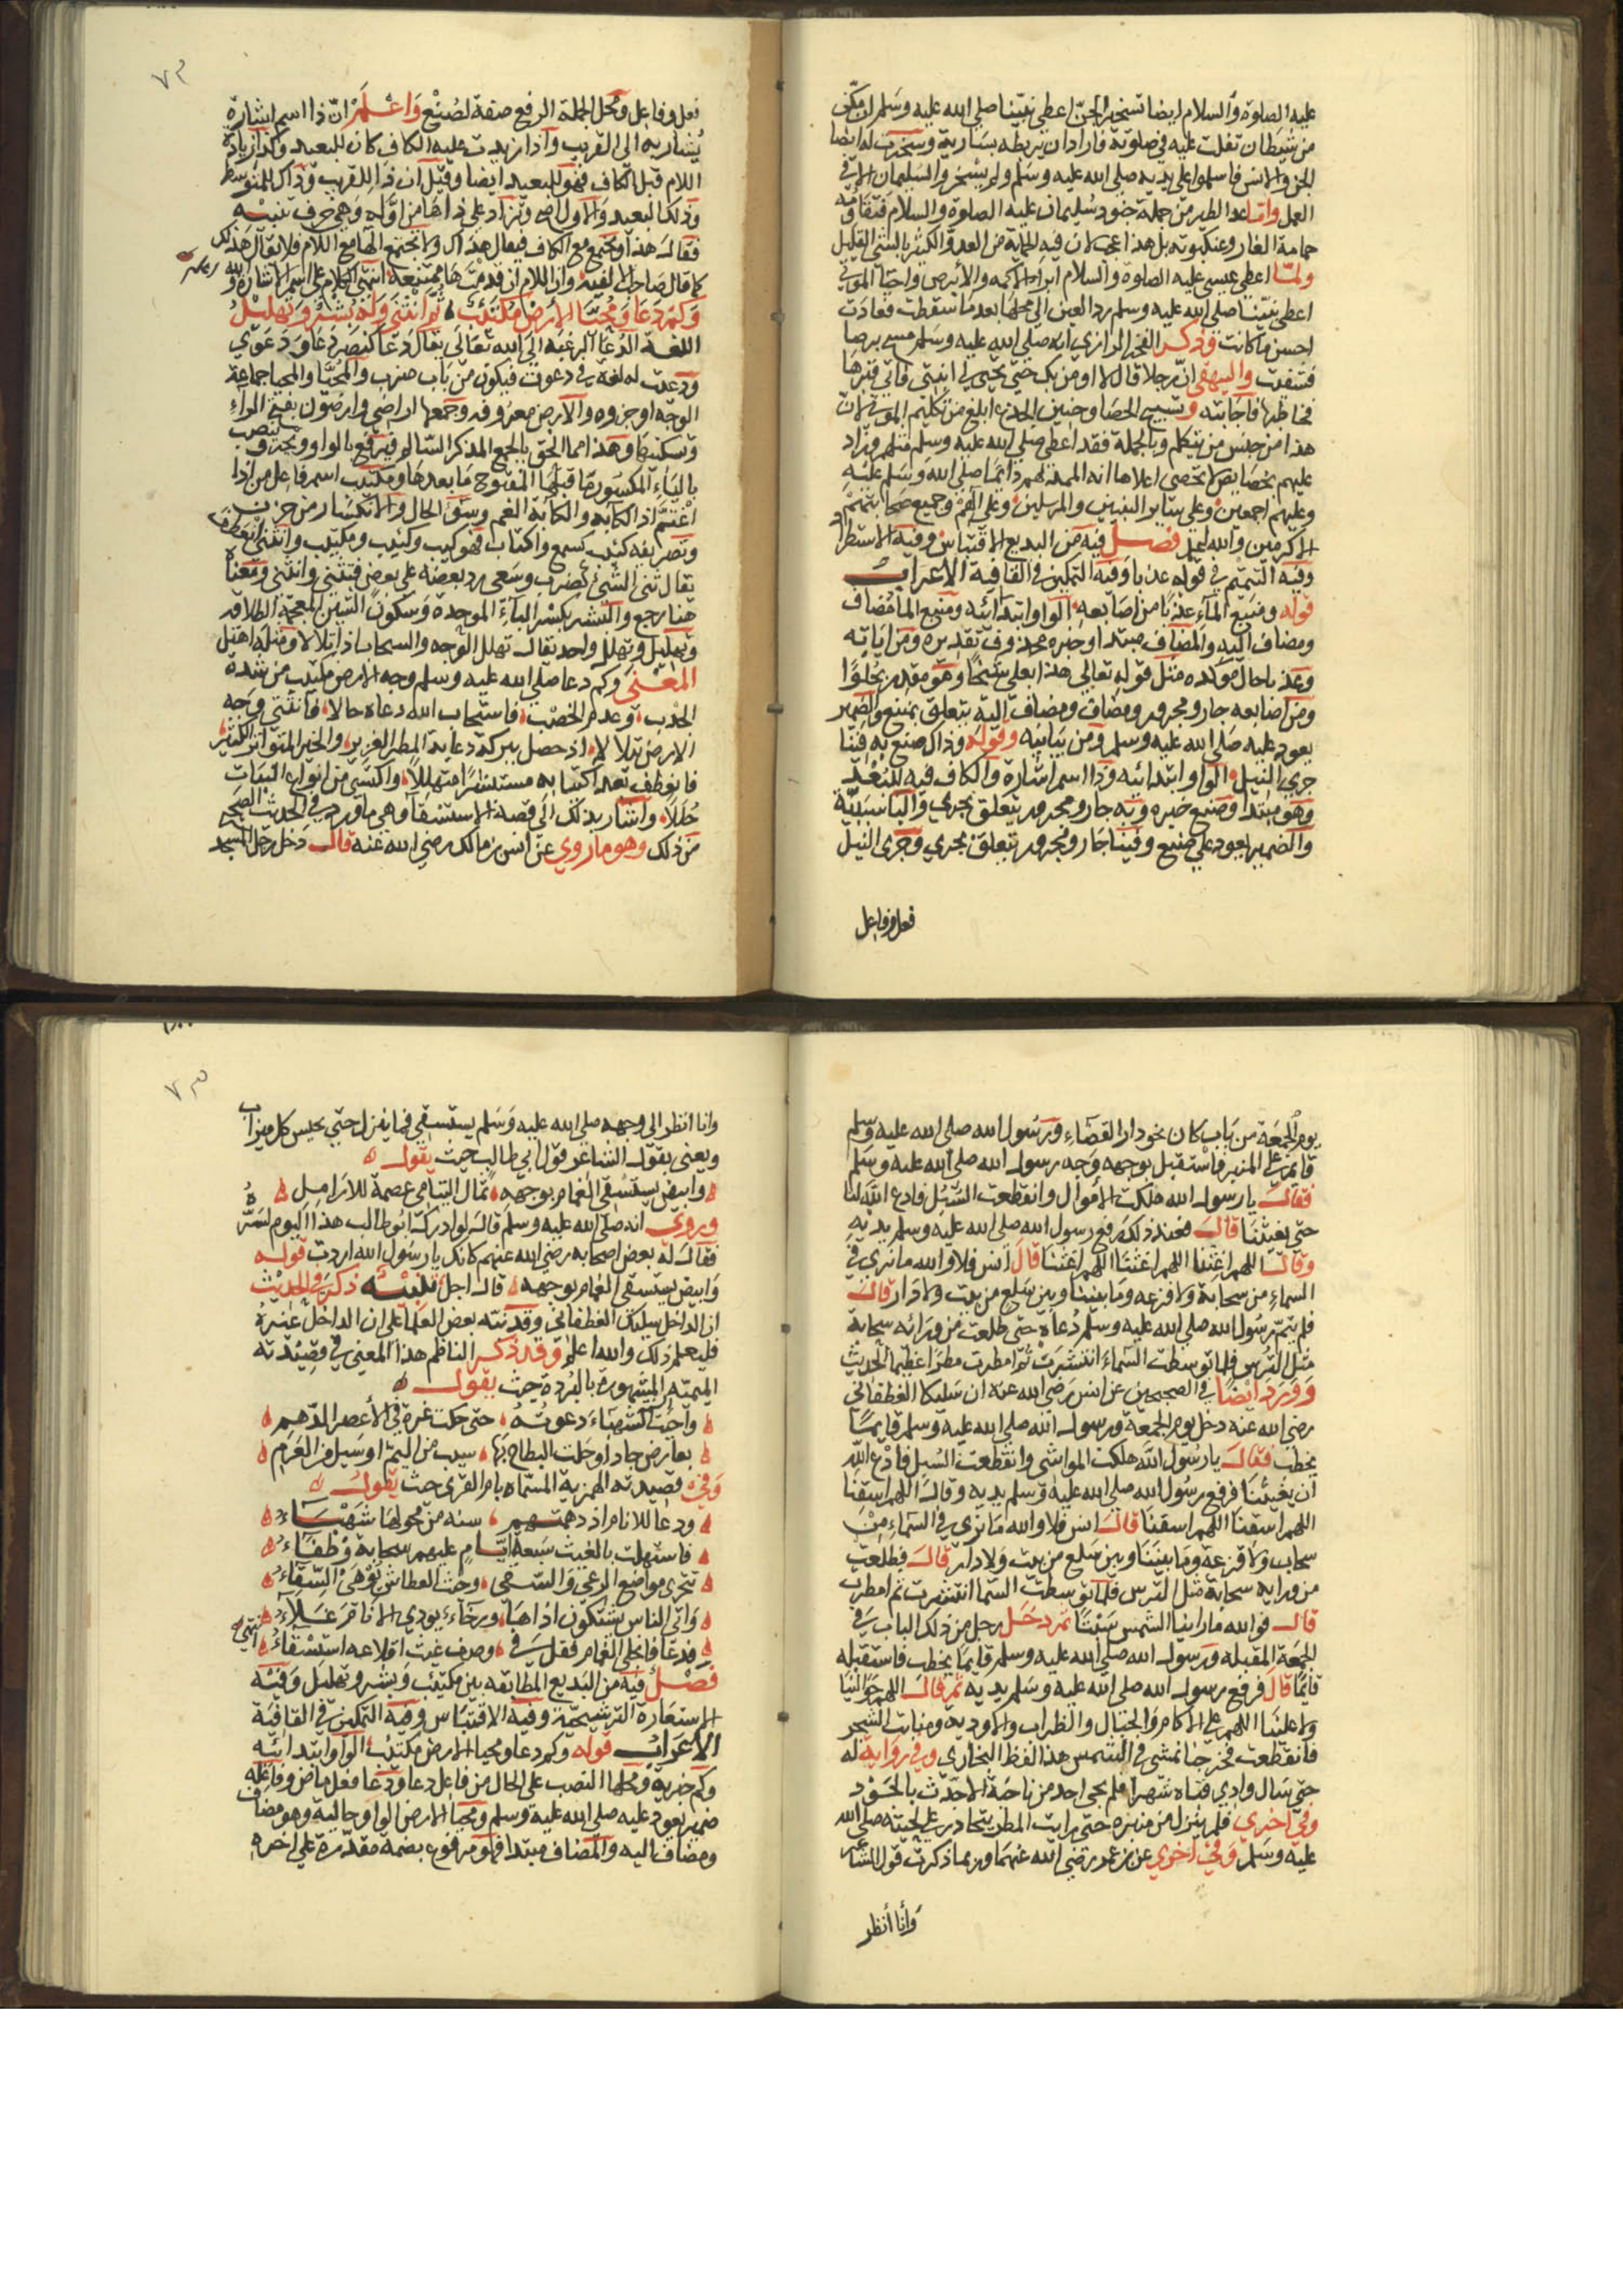 عليه الصلاة والسلام ايضا تسخير الجن اعطى نبينا صلى الله عليه وسلم ان مكنى
من شيطان تفلت عليه في صلوته فاراد ان يربطه بسارية وسخرت له ايضا
الجن والانس فاسلموا على يديه صلى الله عليه وسلم ولم يسخروا لسليمان الا في
العمل واما عد الطير من جملة جنود سليمان عليه الصلوة والسلام
حمامة الغار وعنكبوته بل هذا اعجب لان فيه الحماية من العدو الكثير بالشئ القليل
ولما اعطى عيسى عليه الصلوة والسلام ابراء الاكمه والابرص واحياء الموتى
اعطى نبينا صلى الله عليه وسلم رد العين الى محلها بعد ما سقطت فعادت
احسن ما كانت وذكر الفخر الرازي انه صلى الله عليه وسلم مسح برصا
فشفيت والبيهقى ان رجلا قال لا اومن بك حتى تحيى لي ابنتي فاتى قبرها
فخاطبها فاجابته وتسبيح الحصا وحنين الجذع ابلغ من تكليم الموتى لان
هذا من جنس من يتكلم وبالجملة فقد اعطى صلى الله عليه وسلم مثلهم وزاد
عليهم بخصايص لا تحصى اعلاها انه الممد لهم دائما صلى الله وسلم عليه
وعليهم اجمعين وعلى ساير النبيين والمرسلين وعلى آلهم وجميع صحابتهم
الاكرمين والله اعلم فصل فيه من البديع الاقتباس وفيه الاستطراد
وفيه التتميم في قوله عذبا وفيه التمكين في القافية الاعراب
قوله ومنبع الماء عذبا من اصابعه الواو ابتدائه ومنبع الماء مضاف
ومضاف اليه والمضاف مبتدا وخبره محذوف تقديره ومن اياته
وعذبا حال موكده مثل قوله تعالى هذا بعلي شيخا وهو مقدر بحلوا
ومن اصابعه جار ومجرور ومضاف ومضاف اليه يتعلق بمنبع والضمير
يعود عليه صلى الله عليه وسلم ومن بيانيه وقوله وذاك صنع به فينا
جرى النيل الواو ابتدائيه وذا اسم اشارة والكاف فيه للبعد
وهو مبتدا وصنيع خبره وبه جار ومجرور يتعلق بجرى والبا سببية
والضمير يعود على صنيع وفينا جار ومجرور يتعلق بجرى وجرى النيل
فعل وفاعل
٧٢
فعل وفاعل ومحل الجملة الرفع صفة لصنيع واعلم ان ذا اسم اشارة
يشار به الى القريب واذا زيدت عليه الكاف كان للبعيد وكذا زيادة
اللام قبل الكاف فهو للبعيد ايضا وقيل ان ذا للقريب وذاك للمتوسط
وذلك للبعيد والاول اصح وتزاد على ذا ها من اوله وهي حرف تنبيه
فقال هذا وتجتمع مع الكاف فيقال هذاك ولا تجتمع الها مع اللام فلا يقال هذلك
كما قال صاحب الالفيه واللام ان قدمت ها ممتنعه انتهى الكلام على اسم الاشارة والله اعلم
وكم دعا ومحيا الارض مكتئب ثم انثنى وله بشر وتهليل
اللغة الدعا الرغبة الى الله تعالى يقال دعا كنصر دعا ودعوى
ودعيت له لغة في دعوت فيكون من باب ضرب والمحيا والمحيا جماعة
الوجه او جزوه والارض معروفه وجمعها اراضي وارضون بفتح الراء
وتسكينها وهذا مما الحق بالجمع المذكر السالم فيرفع بالواو وينصب ويجر
بالياء المكسور ما قبلها المفتوح ما بعدها ومكتئب اسم فاعل من اذا
اغتم اذ الكابه والكآبة الغم وسوء الحال والانكسار من حزن
وتصريفه كئب كسمع واكتاب فهو كيب وكئيب ومكتئب وانثنى انعطف
يقال ثنى الشئ كضرب وسعى رد بعضه على بعض فتثنى وانثنى ومعناه
هنا رجع والبشر بكسر الباء الموحدة وسكون الشين المعجمة الطلاقه
وتهليل وتهلل واحد يقال تهلل الوجه والسحاب اذا تلالا ومثله اهتل
المعنى وكم دعا صلى الله عليه وسلم ووجه الارض مكتئب من شدة
الجدب وعدم الخصب فاستجاب الله دعاه حالا فانثنى وجه
الارض يتلالا اذ حصل ببركة دعايه المطر الغزير والخير المتواتر الكثير
فانعطف بعد اكتئابه مستبشرا متهللا واكتسى من انواع النبات
حللا واشار بذلك الى قصة الاستسقاء وهي ما ورد في الحديث الصحيح
من ذلك وهو ما روي عن انس بن مالك رضي الله عنه قال دخل رجل المسجد
يوم الجمعة من باب كان نحو دار القضاء ورسول الله صلى الله عليه وسلم
قائم على المنبر فاستقبل بوجهه وجه رسول الله صلى الله عليه وسلم
فقال يا رسول الله هلكت الاموال وانقطعت السبل فادع الله لنا
حتى يغيثنا قال فعند ذلك رفع رسول الله صلى الله عليه وسلم يديه
وقال اللهم اغثنا اللهم اغثنا اللهم اغثنا قال انس فلا والله ما نرى في
السماء من سحابة ولا قزعه وما بيننا وبين سلع من بيت ولا دار قال
فلم يتم رسول الله صلى الله عليه وسلم دعاه حتى طلعت من ورائه سحابة
مثل الترس فلما توسطت السماء انتشرت ثم امطرت مطرا عظيما الحديث
وورد ايضا في الصحيحين عن انس رضي الله عنه ان سليكا الغطفاني
رضي الله عنه دخل يوم الجمعة ورسول الله صلى الله عليه وسلم قايما
يخطب فقال يا رسول الله هلكت المواشى وانقطعت السبل فادع الله
ان يغيثنا فرفع رسول الله صلى الله عليه وسلم يديه وقال اللهم اسقنا
اللهم اسقنا اللهم اسقنا قال انس فلا والله ما نرى في السماء من
سحاب ولا قزعة وما بيننا وبين سلع من بيت ولا دار قال فطلعت
من ورايه سحابة مثل الترس فلما توسطت السما انتشرت ثم امطرت
قال فوالله ما راينا الشمس سبتا ثم دخل رجل من ذلك الباب في
الجمعة المقبله ورسول الله صلى الله عليه وسلم قايما يخطب فاستقبله
قايما قال فرفع رسول الله صلى الله عليه وسلم يديه ثم قال اللهم حوالينا
ولا علينا اللهم على الاكام والجبال والظراب والاوديه ومنابت الشجر
فانقطعت فخرجنا نمشى في الشمس هذا لفظ البخارى وفي رواية له
حتى سال وادي قناه شهرا فلم يجى احد من ناحية الا حدث بالجود
وفي اخرى فلم ينزل من منبره حتى رايت المطر يتحادر على لحيته صلى الله
عليه وسلم وفي اخرى عن بن عمر رضي الله عنهما وربما ذكرت قول الشاعر
وأنا أنظر
٧٣
وانا انظر الى وجهه صلى الله عليه وسلم يستسقى فما ينزل حتى يجيش كل ميزاب
ويعنى بقول الشاعر قول ابي طالب حيث يقول
وابيض يستسقى الغمام بوجهه ثمال اليتامى عصمة للارامل
وروى انه صلى الله عليه وسلم قال لو ادرك ابو طالب هذا اليوم لسره
فقال له بعض اصحابه رضي الله عنهم كانك يا رسول الله اردت قوله
وابيض يستسقى الغمام بوجهه قال اجل تنبيه ذكر في الحديث
ان الداخل سليك الغطفاني وقد نبه بعض العلما على ان الداخل غيره
فليعلم ذلك والله اعلم وقد ذكر الناظم هذا المعنى في قصيدته
الميميه المشهورة بالبردة حيث يقول
وأحيت الشهباء دعوته حتى حكت غرة في الأعصر الدهم
بعارض جاد او خلت البطاح بها سيب من اليم او سيل من العرم
وفي قصيدته الهمزية المسماه بام القرى حيث يقول
ودعا للانام اذ دهمتهم سنه من محولها شهباء
فاستهلت بالغيث سبعة ايام عليهم سحابة وطفاء
تتحرى مواضع الرعي والسقي وحيث العطاش توهى السقاء
واتى الناس يشتكون اذاها ورخاء يوذي الانام غلاء
فدعا فانجلى الغمام فقل في وصف غيث اقلاعه استسقاء انتهى
فصل فيه من البديع المطابقه بين مكتئب وبشر وتهليل وفيه
الاستعارة الترشيحية وفيه الاقتباس وفيه التمكين في القافية
الاعراب قوله وكم دعا ومحيا الارض مكتئب الواو ابتدائيه
وكم خبرية ومحلها النصب على الحال من فاعل دعا ودعا فعل ماض وفاعله
ضمير يعود عليه صلى الله عليه وسلم ومحيا الارض الواو حالية وهو مضاف
ومضاف اليه والمضاف مبتدا فهو مرفوع بضمة مقدرة على اخره